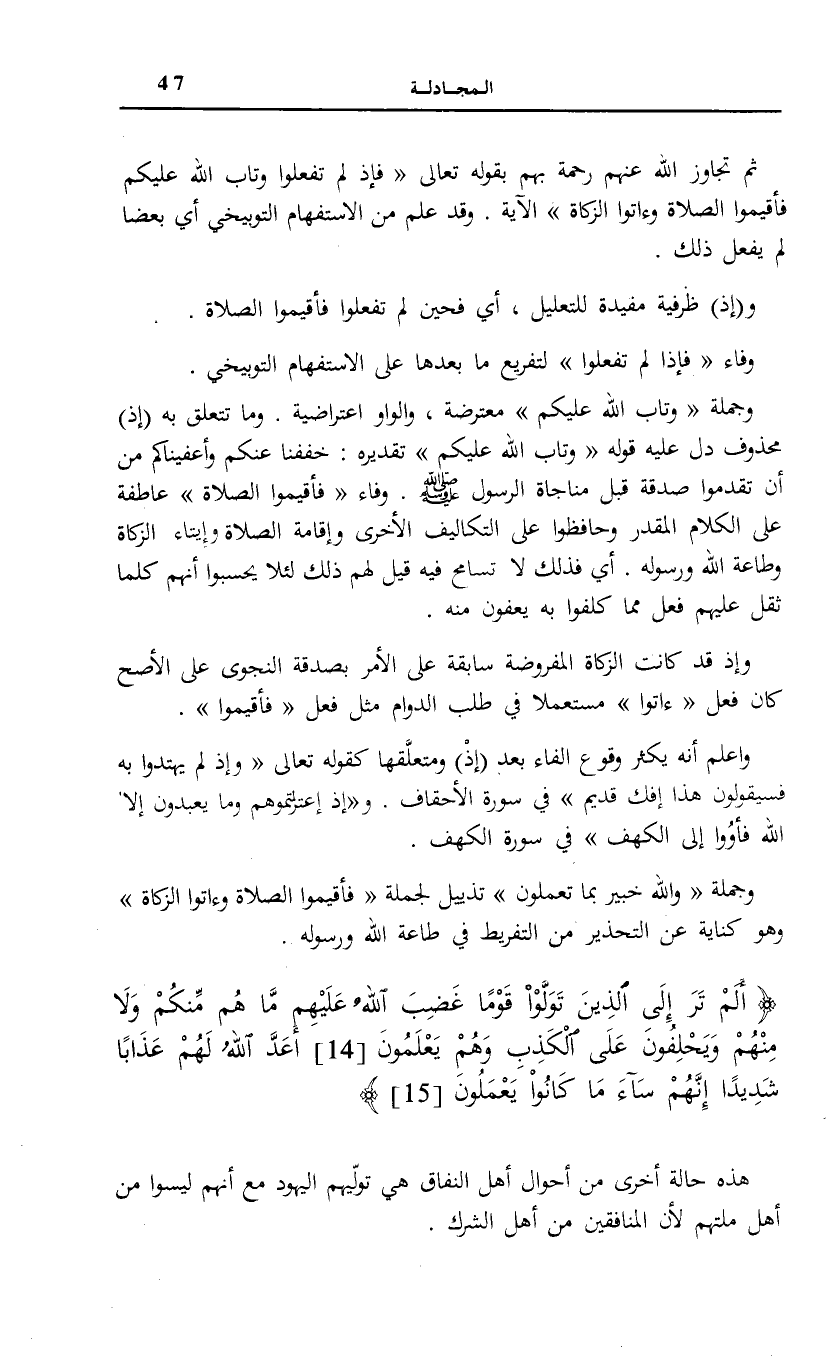 المجادلة 47
ثم تجاوز الله عنهم رحمة بهم بقوله تعالى « فإذ لم تفعلوا وتاب الله عليكم
فأقيموا الصلاة وءاتوا الزكاة » الآية . وقد علم من الاستفهام التوبيخي أي بعضا
لم يفعل ذلك .
و(إذ) ظرفية مفيدة للتعليل ، أي فحين لم تفعلوا فأقيموا الصلاة .
وفاء « فإذا لم تفعلوا » لتفريع ما بعدها على الاستفهام التوبيخي .
وجملة « وتاب الله عليكم » معترضة ، والواو اعتراضية . وما تتعلق به (إذ)
محذوف دل عليه قوله « وتاب الله عليكم » تقديره : خففنا عنكم وأعفيناكم من
أن تقدموا صدقة قبل مناجاة الرسول ﷺ . وفاء « فأقيموا الصلاة » عاطفة
على الكلام المقدر وحافظوا على التكاليف الأخرى وإقامة الصلاة وإيتاء الزكاة
وطاعة الله ورسوله . أي فذلك لا تسامح فيه قيل لهم ذلك لئلا يحسبوا أنهم كلما
ثقل عليهم فعل مما كلفوا به يعفون منه .
وإذ قد كانت الزكاة المفروضة سابقة على الأمر بصدقة النجوى على الأصح
كان فعل « ءاتوا » مستعملا في طلب الدوام مثل فعل « فأقيموا » .
واعلم أنه يكثر وقوع الفاء بعد (إذْ) ومتعلَّقها كقوله تعالى « وإذ لم يهتدوا به
فسيقولون هذا إفك قديم » في سورة الأحقاف . و«إذ إعتزلتموهم وما يعبدون إلا
الله فأوُوا إلى الكهف » في سورة الكهف .
وجملة « والله خبير بما تعملون » تذييل لجملة « فأقيموا الصلاة وءاتوا الزكاة »
وهو كناية عن التحذير من التفريط في طاعة الله ورسوله .
﴿ أَلَمْ تَرَ إِلَى ٱلذِينَ تَوَلَّوْاْ قَوْمًا غَضِبَ ٱللَّهُ عَلَيْهِم مَّا هُم مِّنكُمْ وَلَا
مِنْهُمْ وَيَحْلِفُونَ عَلَى ٱلْكَذِبِ وَهُمْ يَعْلَمُونَ [14] أَعَدَّ ٱللَّهُ لَهُمْ عَذَابًا
شَدِيدًا إِنَّهُمْ سَآءَ مَا كَانُواْ يَعْمَلُونَ [15] ﴾
هذه حالة أخرى من أحوال أهل النفاق هي تولّيهم اليهود مع أنهم ليسوا من
أهل ملتهم لأن المنافقين من أهل الشرك .